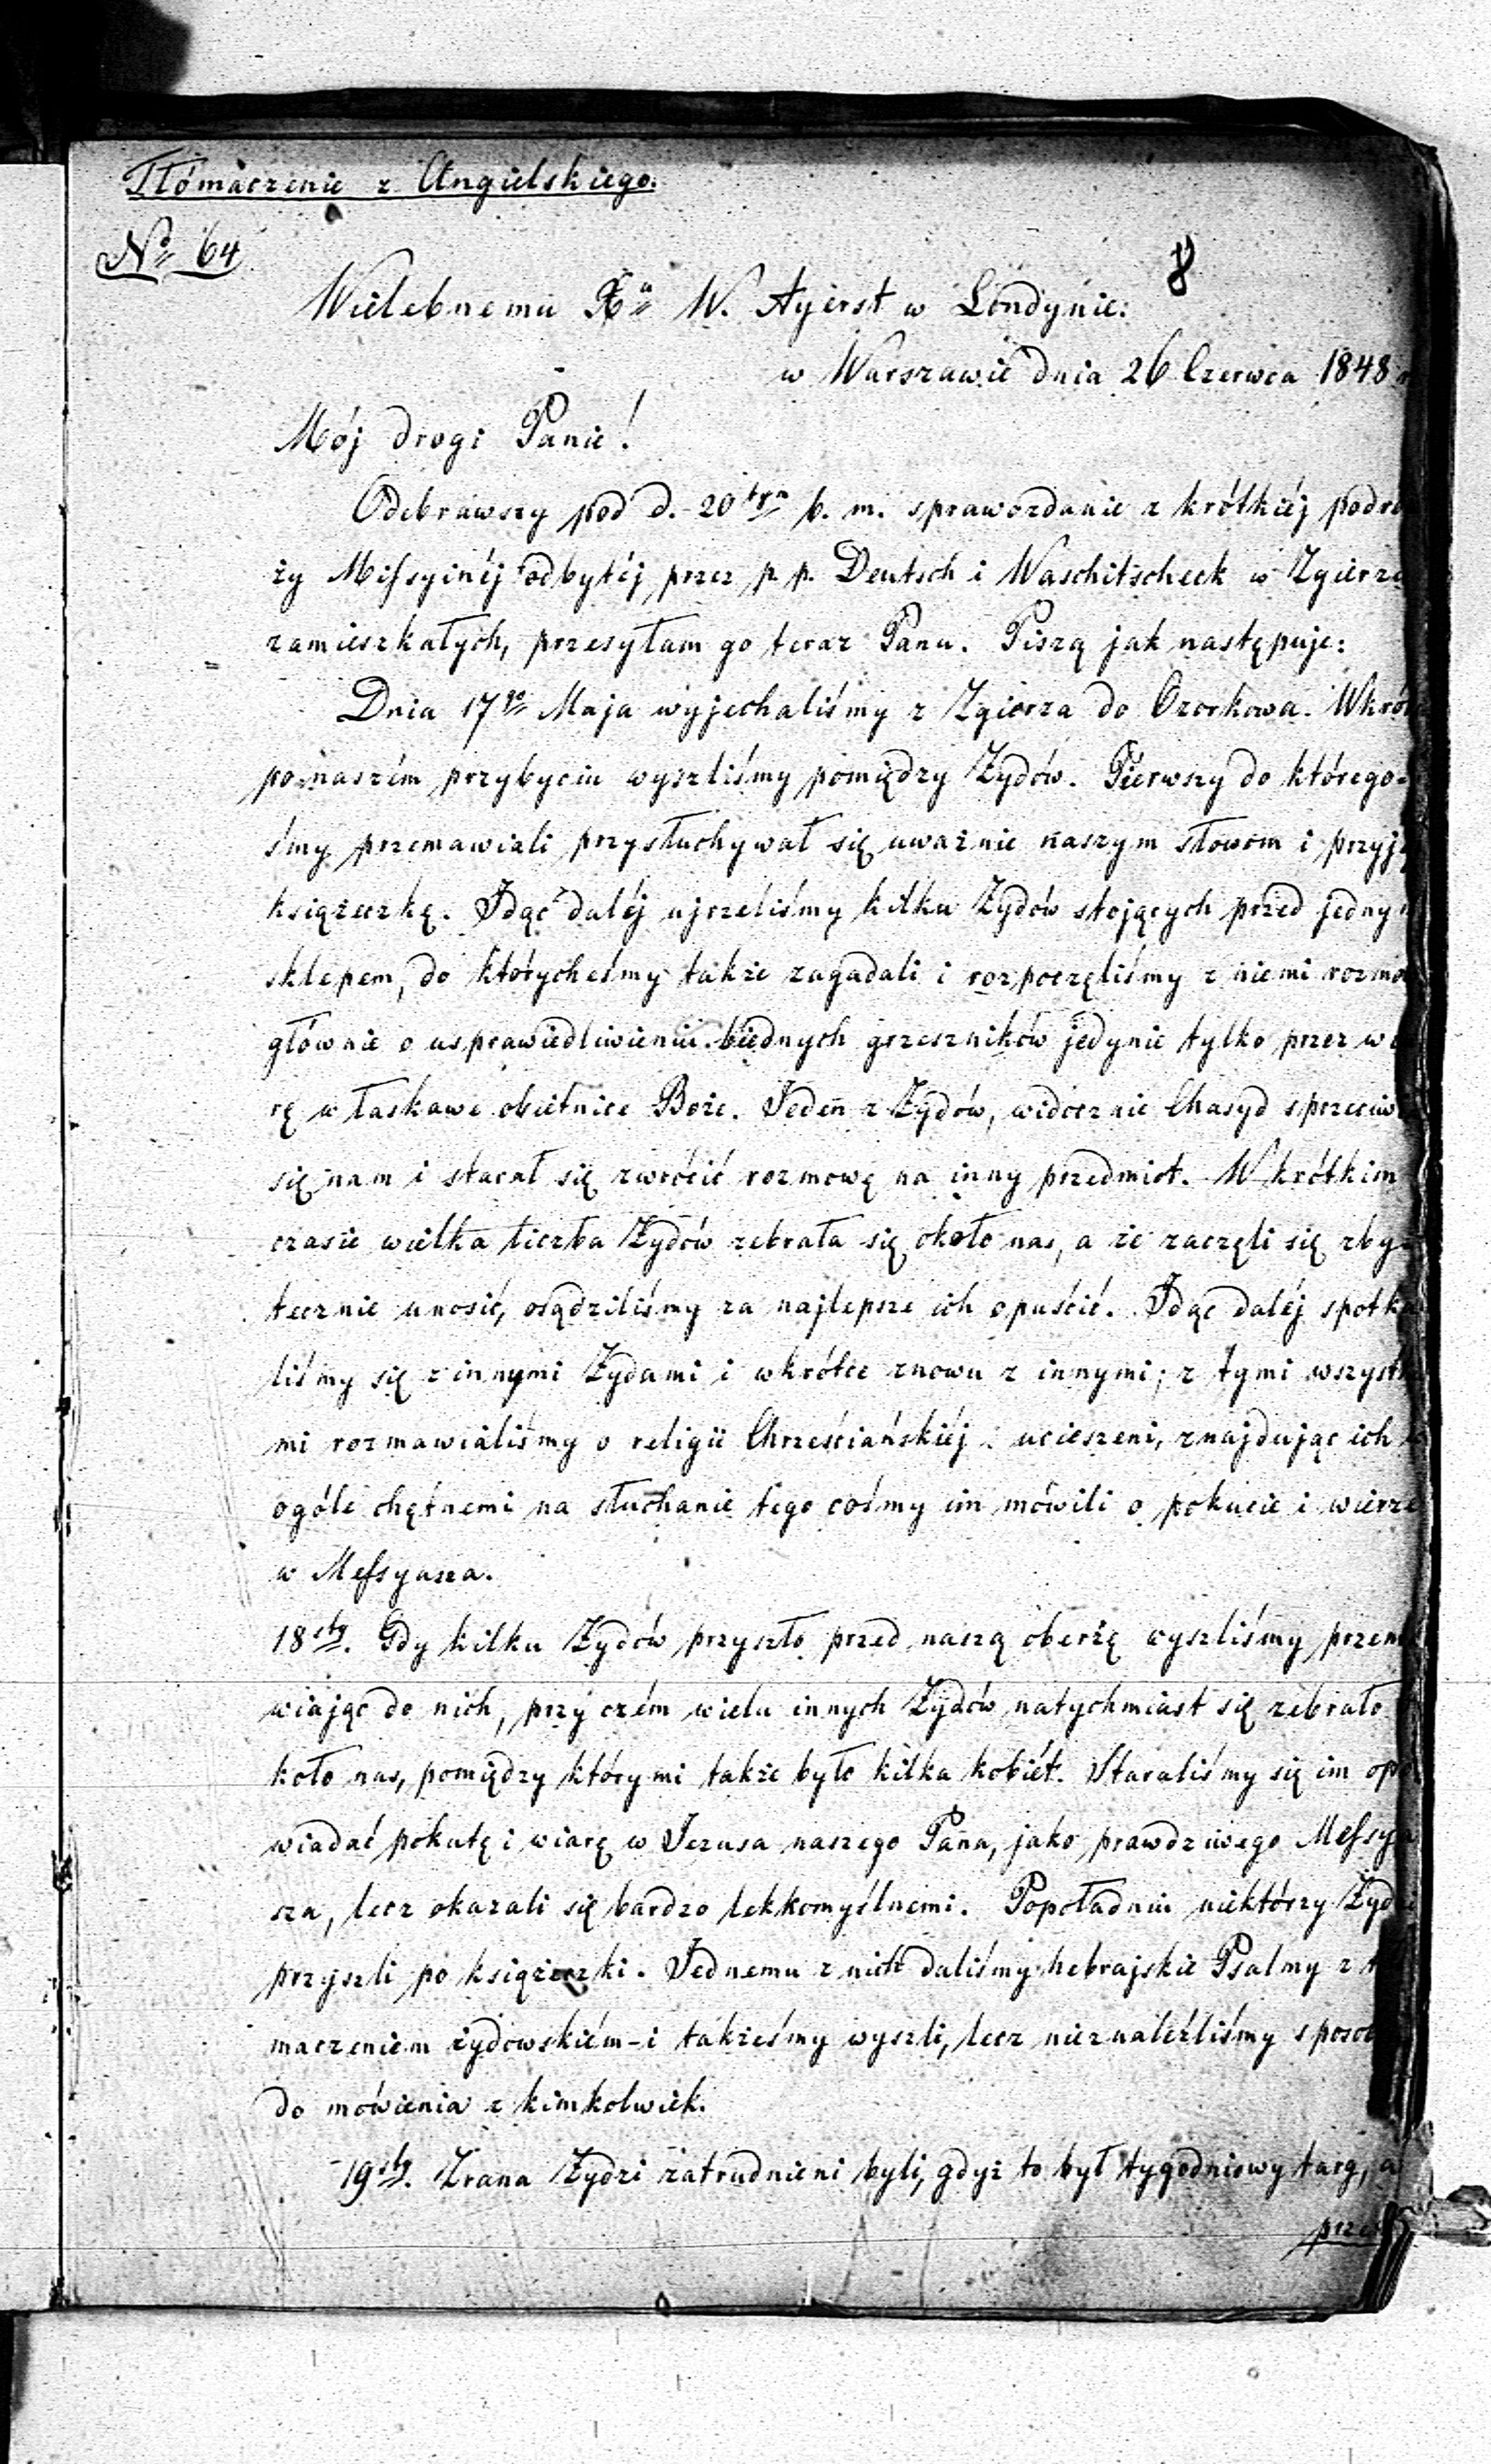 Tłómaczenie z Angielskiego.
No 64
8
Wielebnemu Xu W. Ayerst w Londynie:
w Warszawie dnia 26 Czerwca 1848
Mój drogi Panie!
Odebrawszy pod d. 20tym b. m. sprawozdanie z krótkiéj podró
ży Missyinéj odbytéj przez p. p. Deutsch i Waschitscheck w Zgierzu
zamieszkałych, przesyłam go teraz Panu. Piszą jak następuje:
Dnia 17go Maja wyjechaliśmy z Zgierza do Ozorkowa. Wkró
po naszém przybyciu wyszliśmy pomiędzy Żydów. Pierwszy do którego-
śmy przemawiali przysłuchywał się uważnie naszym słowom i przyj
książeczkę. Idąc daléj ujrzeliśmy kilku Żydów stojących przed jednym
sklepem, do którycheśmy także zagadali i rozpoczęliśmy z niemi rozmo
głównie o usprawiedliwieniu biednych grzeszników jedynie tylko przez wia
rę w łaskawe obietnice Boże. Jeden z Żydów, widocznie Chasyd sprzeciwi
się nam i starał się zwrócić rozmowę na inny przedmiot. W krótkim
czasie wielka liczba Żydów zebrała się około nas, a że zaczęli się zby
tecznie unosić, osądziliśmy za najlepsze ich opuścić. Idąc daléj spotka
liśmy się z innymi Żydami i wkrótce znowu z innymi; z tymi wszystki
mi rozmawialiśmy o religii Chrześciańskiéj ucieszeni, znajdując ich
ogóle chętnemi na słuchanie tego cośmy im mówili o pokucie i wierze
w Messyasza.
18sty. Gdy kilku Żydów przyszło przed naszą oberżę wyszliśmy przema
wiając do nich, przy czém wielu innych Żydów natychmiast się zebrało
koło nas, pomiędzy którymi także było kilka kobiét. Staraliśmy się im opo
wiadać pokutę i wiarę w Jezusa naszego Pana, jako prawdziwego Messya
sza, lecz okazali się bardzo lekkomyślnemi. Popołudniu niektórzy Żydzi
przyszli po książeczki. Jednemu z nich daliśmy hebrajskie Psalmy z
maczeniem żydowskiém - i takżeśmy wyszli, lecz nieznaleźliśmy sposob
do mówienia z kimkolwiek.
19sty. Zrana Żydzi zatrudnieni byli, gdyż to był tygodniowy targ, a
prze